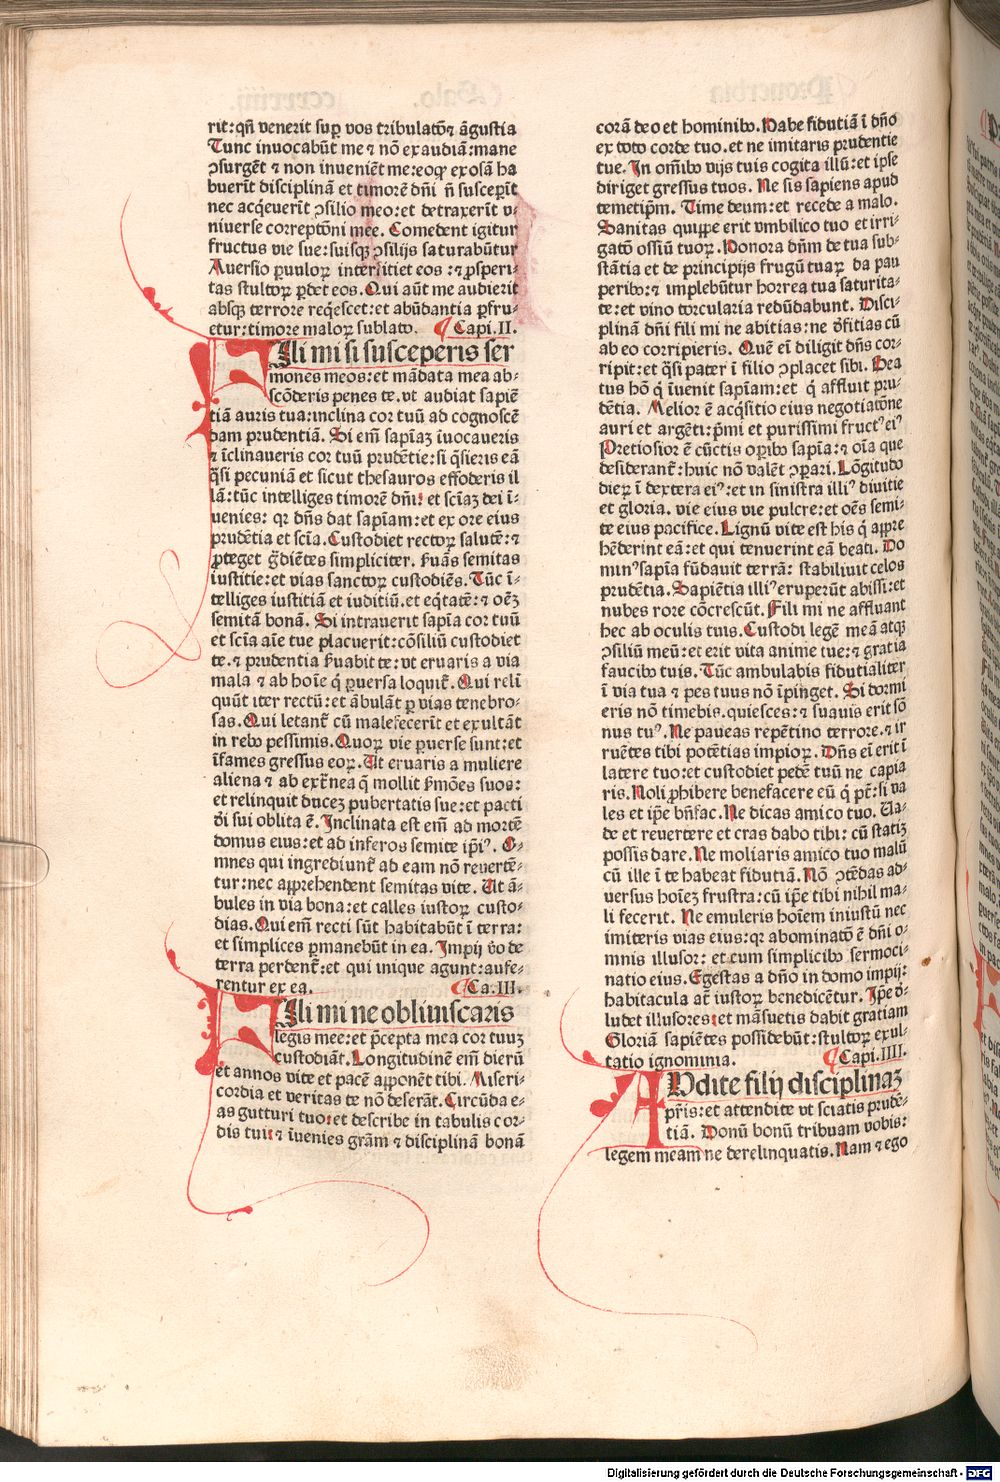 rit: qñ venerit suꝑ vos tribulatōꝛ ãgustia
Tunc inuocabũt me ⁊ nō exaudiã: mane
ↄsurgẽt ⁊ non inueniẽt me: eoꝙ exosã ha
buerīt disciplinã et timorẽ dñi ⁊ ñ susceperīt
nec acq̃euerīt ↄsilio meo: et detraxerīt v-
niuerse correptōni mee. Comedent igitur
fructus vie sue: suisqꝫ ↄsilijs saturabũtur
Auersio ꝑuuloꝝ interficiet eos: ⁊ ꝓsperi-
tas stultoꝝ ꝑdet eos. Qui aũt me audierit
absqꝫ terrore req̃escet: et abũdantia ꝑfru-
etur: timore maloꝝ sublato. Capi. II.
FIli mi si susceperis ser
mones meos: et mãdata mea ab-
scõderis penes te. vt audiat sapiẽ
tiã auris tua: inclina cor tuũ ad cognoscẽ
dam prudentiã. Si em̃ sapĩaꝫ inuocaueris
⁊ ĩclinaueris cor tuũ prudẽtie: si q̃sieris eã
q̃si pecuniã et sicut thesauros effoderis il
lã: tũc intelliges timorẽ dñi: et sciãꝫ dei ĩ-
uenies: qꝛ dñs dat sapĩam: et ex ore eius
prudẽtia et scĩa. Custodiet rectoꝝ salutẽ: ⁊
ꝓteget gͣdiẽtes simpliciter. ẜuãs semitas
iustitie: et vias sanctoꝝ custodiẽs. Tũc ĩ-
telliges iustitiã et iuditiũ. et eq̃tatẽ: ⁊ oẽꝫ
semitã bonã. Si intrauerit sapĩa cor tuũ
et scĩa aĩe tue placuerit: cõsiliũ custodiet
te. ⁊ prudentia ẜuabit te: vt eruaris a via
mala ⁊ ab hoĩe q̇ ꝑuersa loquit̃. Qui reli
quũt iter rectũ: et ãbulãt ꝑ vias tenebro-
sas. Qui letant̃ cũ malefecerīt et exultãt
in rebꝰ pessimis. Quoꝝ vie ꝑuerse sunt: et
ĩfames gressus eoꝝ. Ut eruaris a muliere
aliena ⁊ ab extͣnea q̃ mollit ẜmões suos:
et relinquit duceꝫ pubertatis sue: et pacti
d̓i sui oblita ẽ. Inclinata est em̃ ad mortẽ
domus eius: et ad inferos semite ip̃iꝰ. O-
mnes qui ingrediunt̃ ad eam nõ reuertẽ-
tur: nec apprehendent semitas vite. Ut ã-
bules in via bona: et calles iustoꝝ custo-
dias. Qui em̃ recti sũt habitabũt ĩ terra:
et simplices ꝑmanebũt in ea. Impij v̓o de
terra perdent̃: et qui inique agunt: aufe-
rentur ex ea. Ca. III.
FIli mi ne obliuiscaris
legis mee: et p̃cepta mea cor tuuꝫ
custodiãt. Longitudinẽ em̃ dierũ
et annos vite et pacẽ apponẽt tibi. Miseri-
cordia et veritas te nõ deserãt. Circũda e-
as gutturi tuo: et describe in tabulis cor-
dis tui: ⁊ ĩuenies grãm ⁊ disciplinã bonã
corã deo et hominibꝰ. Habe fidutiã ĩ dño
ex toto corde tuo. et ne imitaris prudentie
tue. In om̃ibꝰ vijs tuis cogita illũ: et ipse
diriget gressus tuos. Ne sis sapiens apud
temetip̃m. Time deum: et recede a malo.
Sanitas quippe erit vmbilico tuo et irri-
gatõ ossiũ tuoꝝ. Honora dñm de tua sub-
stãtia et de principijs frugũ tuaꝝ da pau
peribꝰ: ⁊ implebũtur horrea tua saturita-
te: et vino torcularia redũdabunt. Disci-
plinã dñi fili mi ne abitias: ne d̓fitias cũ
ab eo corripieris. Quẽ eĩ diligit dñs cor-
ripit: et q̃si pater ĩ filio ↄplacet sibi. Bea
tus hõ q̇ ĩuenit sapĩam: et q̇ affluit pru-
dẽtia. Melior ẽ acq̃sitio eius negotiatõne
auri et argẽti: p̃mi et purissimi fructꝰ eiꝰ
Pretiosior ẽ cũctis opibꝰ sapĩa: ⁊ oĩa que
desiderant̃: huic nõ valẽt ↄpari. Lõgitudo
dieꝝ ĩ dextera eiꝰ: et in sinistra illiꝰ diuitie
et gloria. vie eius vie pulcre: et oẽs semi-
te eius pacifice. Lignũ vite est his q̇ appre
hẽderint eã: et qui tenuerint eã beati. Do
minꝰ sapĩa fũdauit terrã: stabiliuit celos
prudẽtia. Sapiẽtia illiꝰ eruperũt abissi: et
nubes rore cõcrescũt. Fili mi ne affluant
hec ab oculis tuis. Custodi legẽ meã atqꝫ
ↄsiliũ meũ: et erit vita anime tue: ⁊ gratia
faucibꝰ tuis. Tũc ambulabis fidutialiter
ĩ via tua ⁊ pes tuus nõ ĩpinget. Si dormi
eris nõ timebis. quiesces: ⁊ suauis erit sõ
nus tuꝰ. Ne paueas repẽtino terrore. ⁊ ir
ruẽtes tibi potẽtias impioꝝ. Dñs eĩ erit ĩ
latere tuo: et custodiet pedẽ tuũ ne capia
ris. Noli ꝓhibere benefacere eũ q̇ põt: si va
les et ip̃e bñfac. Ne dicas amico tuo. Va-
de et reuertere et cras dabo tibi: cũ statiꝫ
possis dare. Ne moliaris amico tuo malũ
cũ ille ĩ te habeat fidutiã. Nõ ↄtẽdas ad-
versus hoĩeꝫ frustra: cũ ip̃e tibi nihil ma-
li fecerit. Ne emuleris hoĩem iniustũ nec
imiteris vias eius: qꝛ abominatõ ẽ dñi o-
mnis illusor: et cum simplicibꝰ sermoci-
natio eius. Egestas a dño in domo impij:
habitacula aũt iustoꝝ benedicẽtur. Ip̃e d̓-
ludet illusores: et mãsuetis dabit gratiam
Gloriã sapiẽtes possidebũt: stultoꝝ exul-
tatio ignominia. Capi. IIII.
AUdite filij disciplinaꝫ
pr̃is: et attendite vt sciatis prudẽ-
tiã. Donũ bonũ tribuam vobis:
legem meam ne derelinquatis. Nam ⁊ ego
Digitalisierung gefördert durch die Deutsche Forschungsgemeinschaft - DFG